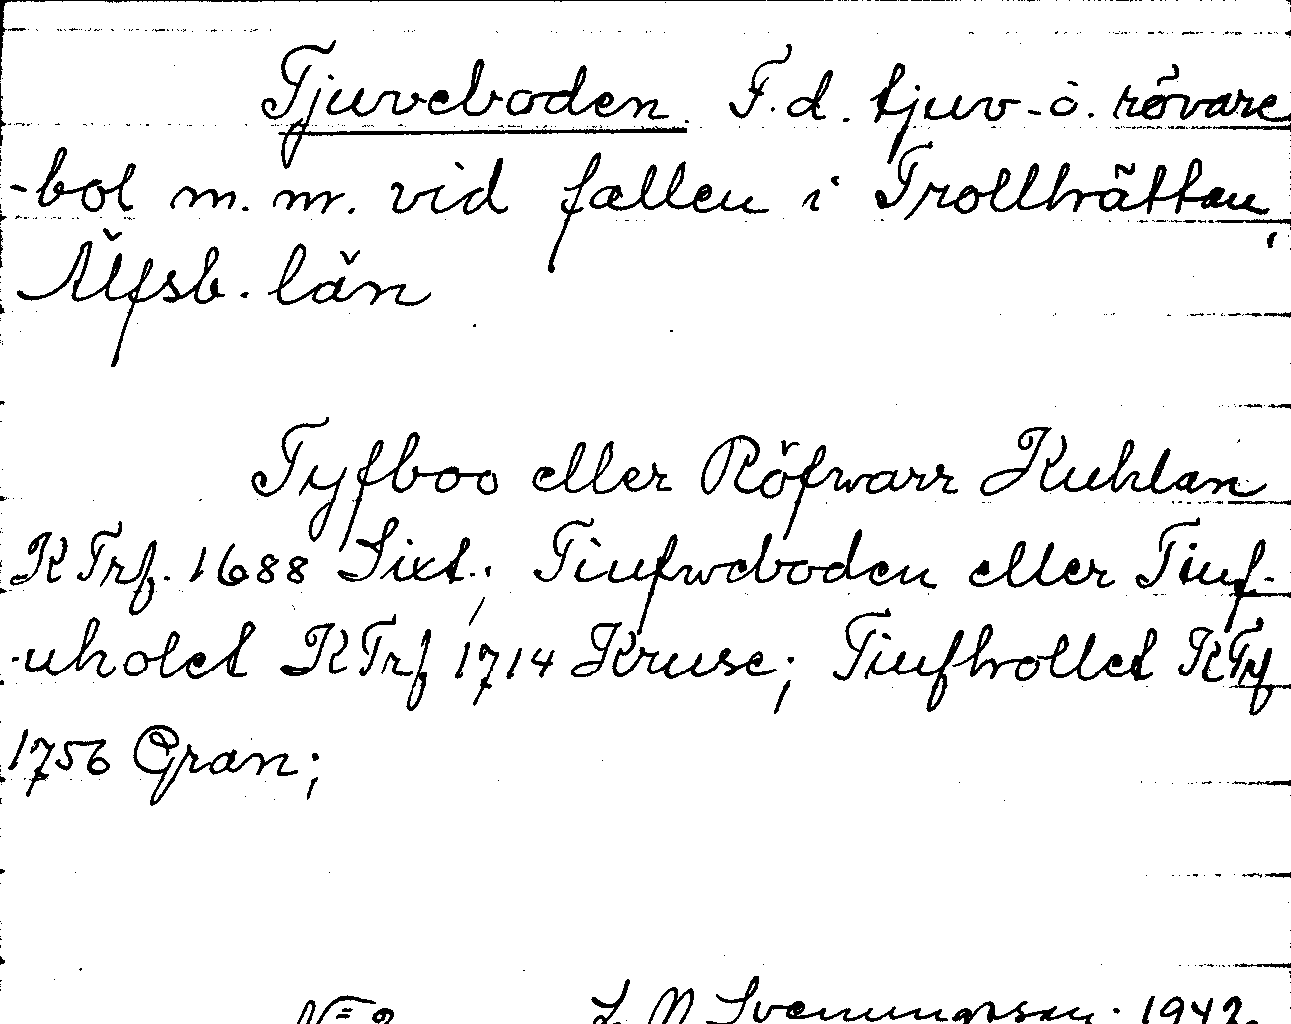 Tjuveboden. F. d. tjuv- o. rövare
-bol m. m. vid fallen i Trollhättan,
Älfsb. län
Tyfboo eller Röfwarr Kuhlan
KTrf. 1688 Sixt.; Tiufweboden eller Tiuf-
-uholet KTrf 1714 Kruse; Tiufhollet KTrf
1756 Gran;
N= 2 S N Svenungsson. 1942.